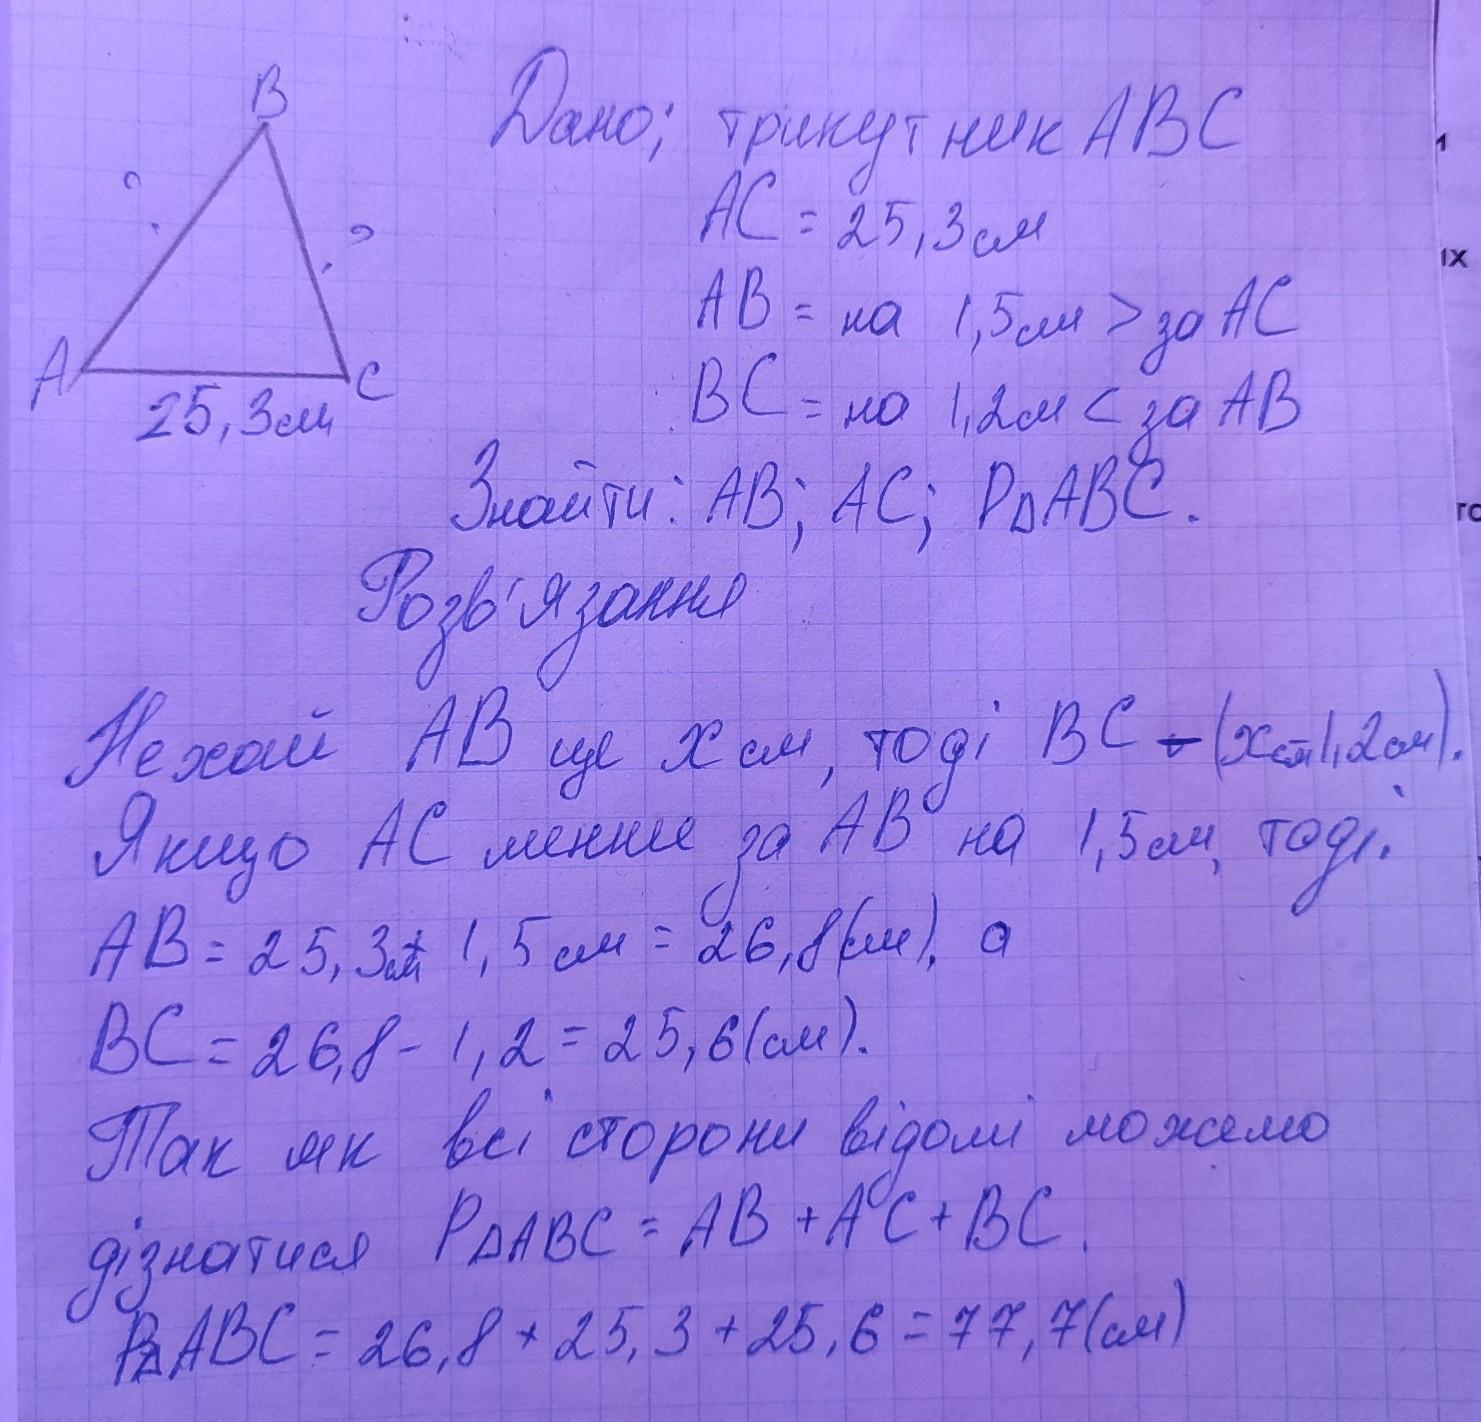 B
Дано; трикутник ABC
?
AC = 25,3см
?
AB = на 1,5см > за AC
A
C
25,3см
BC = на 1,2см < за AB
Знайти: AB; AC; P△ABC.
Розв'язання
Нехай AB це x см, тоді BC - (x см-1,2см).
Якщо AC менше за AB на 1,5см, тоді.
AB = 25,3см + 1,5см = 26,8(см), а
BC = 26,8 - 1,2 = 25,6(см).
Так як всі сторони відомі можемо
дізнатися P△ABC = AB + AC + BC.
P△ABC = 26,8 + 25,3 + 25,6 = 77,7(см)
1
их